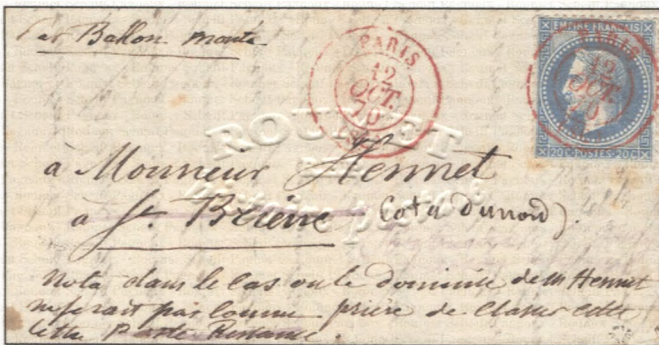 Par Ballon monté
PARIS
12
OCT.
70
EMPIRE FRANÇAIS
PARIS
12
OCT.
70
20c POSTES 20c
ROUMET
histoire postale
à Monsieur Hennet
à St. Brieuc (cote du nord).
Nota dans le cas ou le domicile de m Hennet
ne serait pas connu prière de classer cette
lettre Poste Restante.